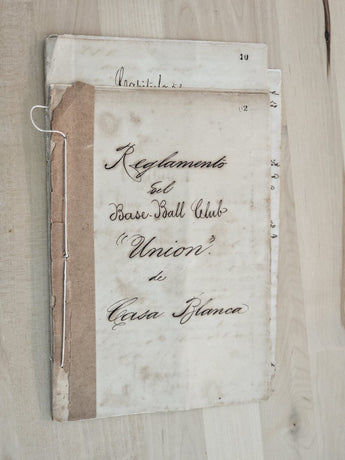 10
82
Reglamento
del
Base-Ball Club
"Union".
de
Casa Blanca